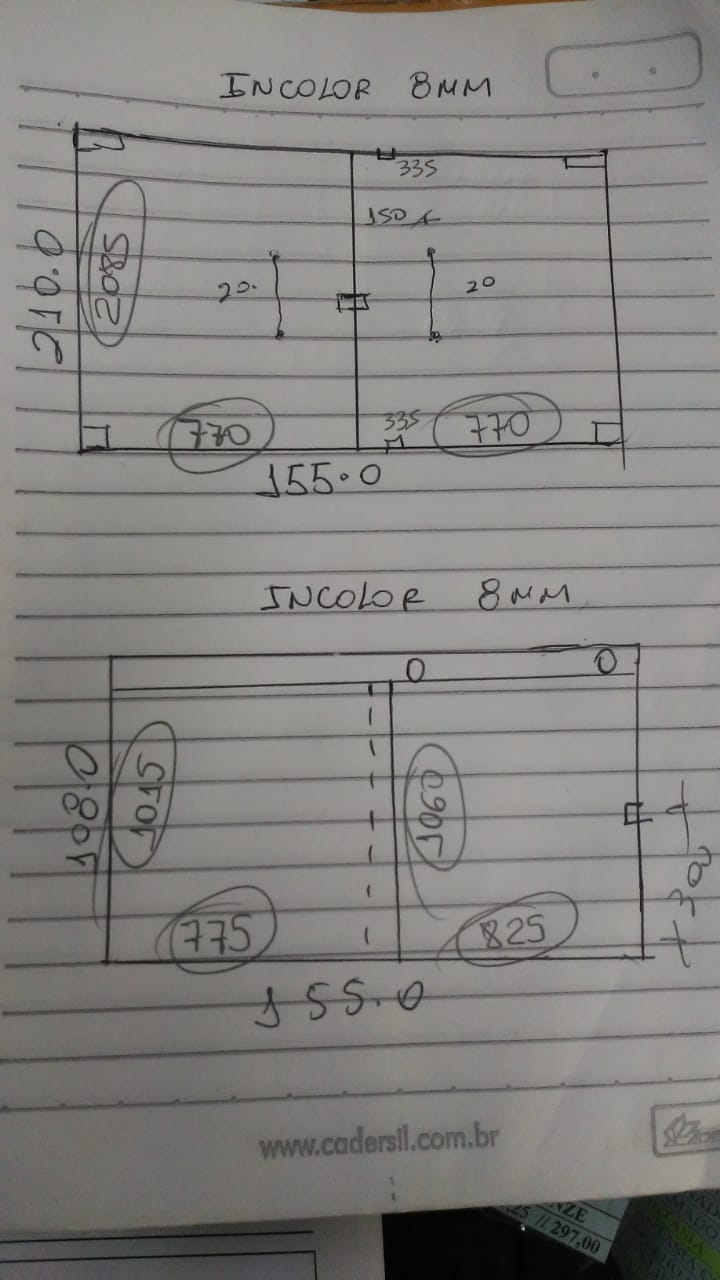 INCOLOR 8MM
335
150
210.0
2085
20.
20
770
335
770
155.0
INCOLOR 8MM
O
O
108.0
1015
1060
30
775
825
155.0
www.cadersil.com.br
NZE
25 // 297,00